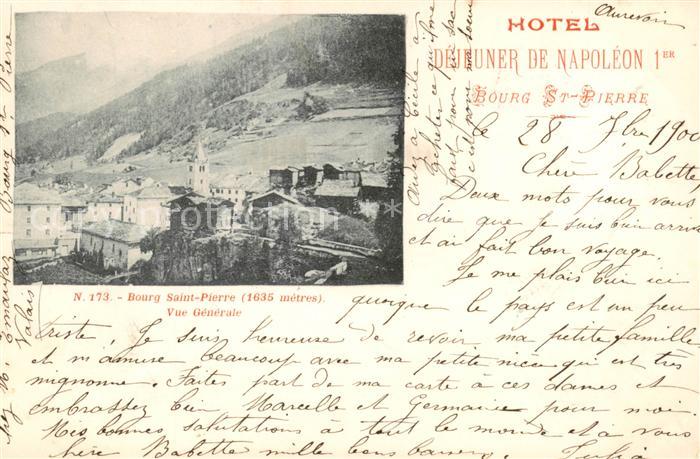 HOTEL
DÉJEUNER DE NAPOLÉON 1ER
BOURG ST-PIERRE
Aurevoir
le 28 7bre 1900
Chère Babette
Deux mots pour vous
dire que je suis bien arrivée
et ai fait bon voyage.
Je me plais bien ici
quoique le pays est un peu
triste. Je suis heureuse de revoir ma petite famille
et m'amuse beaucoup avec ma petite nièce qui est très
mignonne. Faites part de ma carte à ces dames et
embrassez bien Marcelle et Germaine pour moi
Mes bonnes salutations à tout le monde et à vous
chère Babette mille bons baisers. Julia
N. 173. - Bourg Saint-Pierre (1635 mètres).
Vue Générale
protection
Bourg St Pierre
Valais